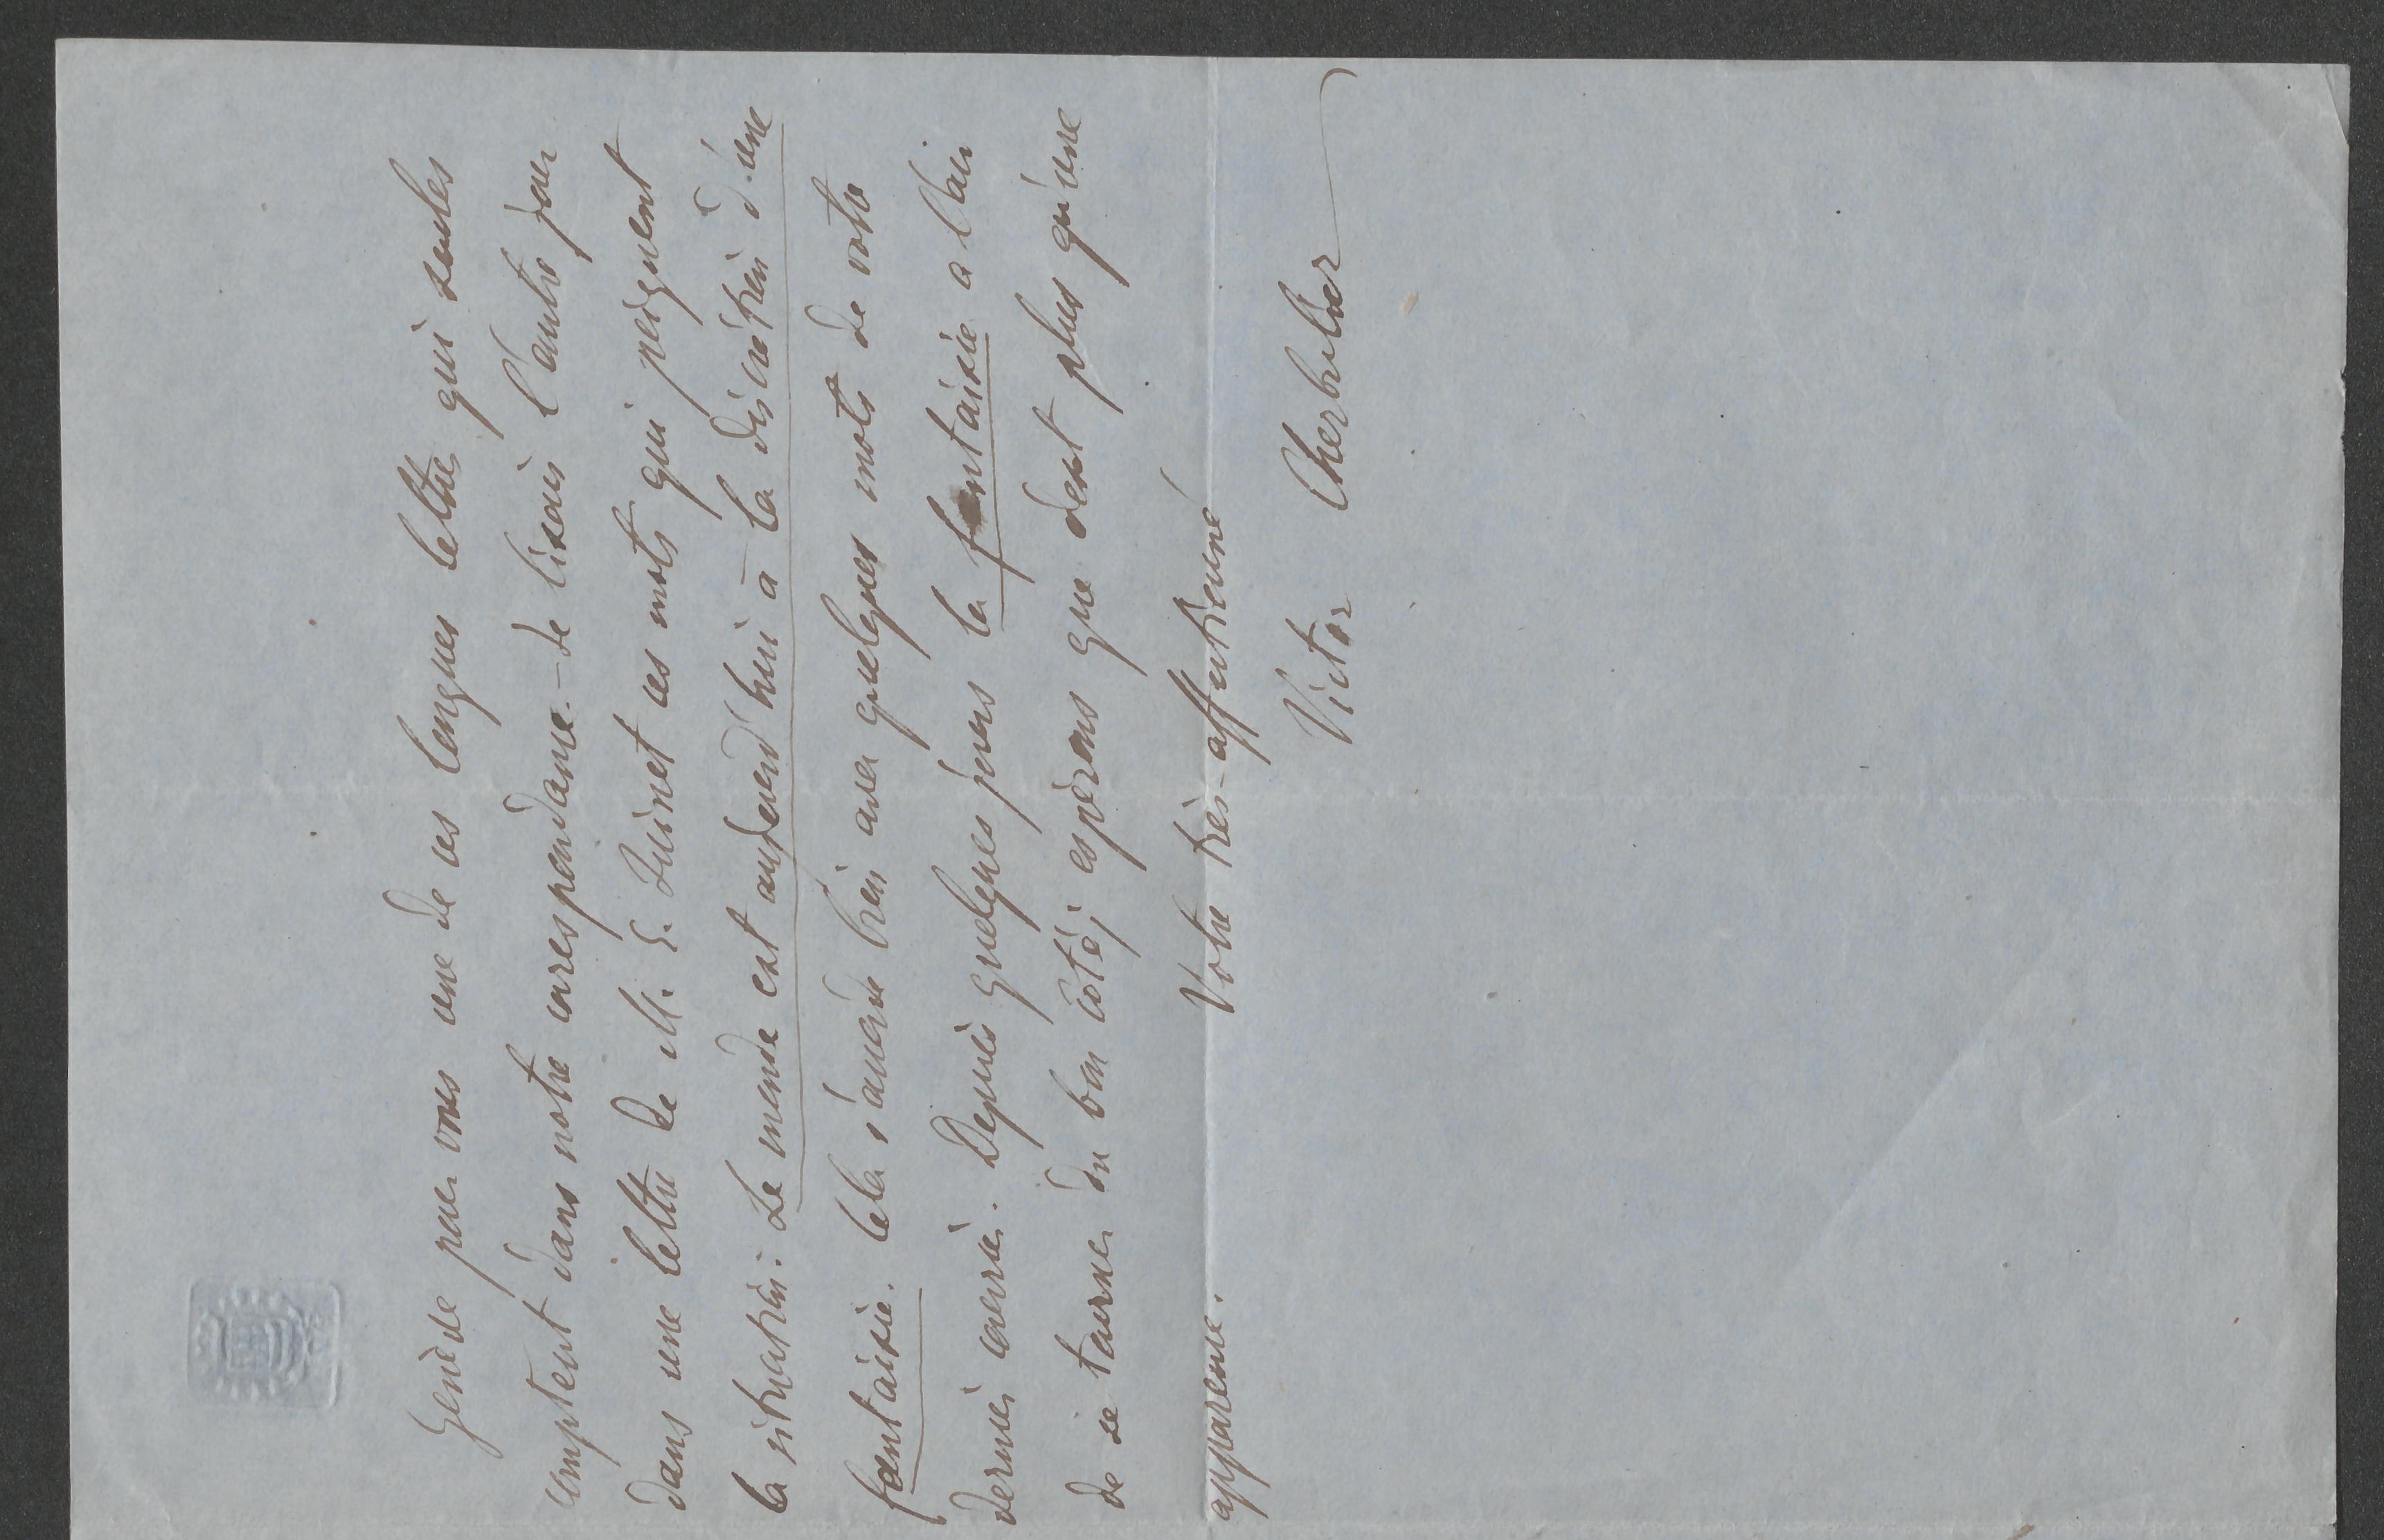 Genève pour vous une de ces longues lettres qui seules
comptent dans notre correspondance. – Je lisais l'autre jour
dans une lettre de M. E. Quinet ces mots qui peignent
la situation: Le monde est aujourd'hui à la discrétion d'une
fantaisie. Cela s'accorde bien avec quelques mots de votre
dernier courrier. Depuis quelques jours la fantaisie a l'air
de se tourner du bon côté; espérons que c'est plus qu'une
apparence.
Votre très-affectionné
Victor Cherbuliez